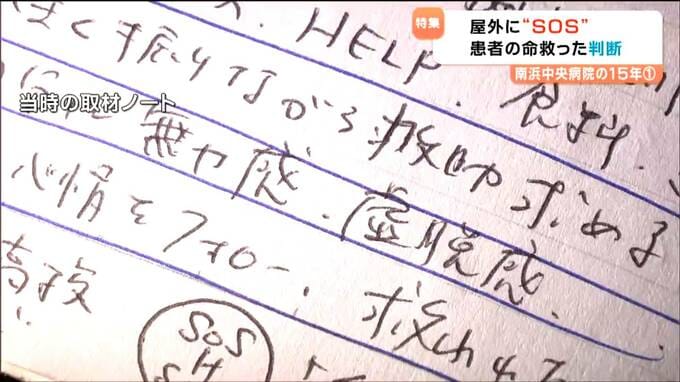 特集
屋外に"SOS"
患者の命救った判断
南浜中央病院の15年①
当時の取材ノート
く振りながら救助求める
HELP、食料、
無力感、虚脱感、
心情をフォロー、
SOS
H